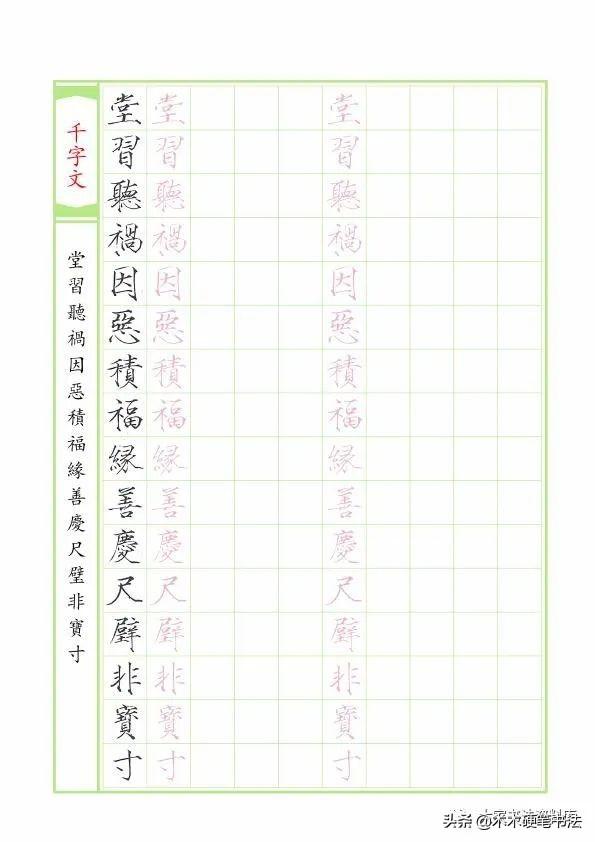 千字文
堂習聽禍因惡積福緣善慶尺璧非寶寸
堂堂堂
習習習
聽聽聽
禍禍禍
因因因
惡惡惡
積積積
福福福
緣緣緣
善善善
慶慶慶
尺尺尺
璧璧璧
非非非
寶寶寶
寸寸寸
头条 @木木硬笔书法